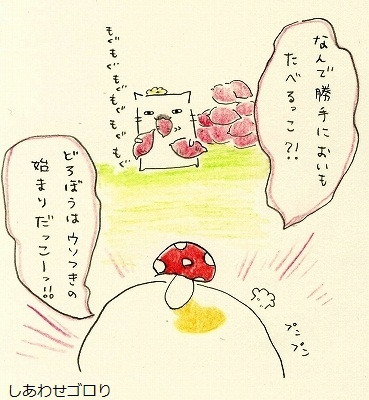 なんで勝手においも
たべるっこ?!
もぐもぐもぐもぐもぐもぐ
どろぼうはウソつきの
始まりだっこーっ!!
プンプン
しあわせゴロリ